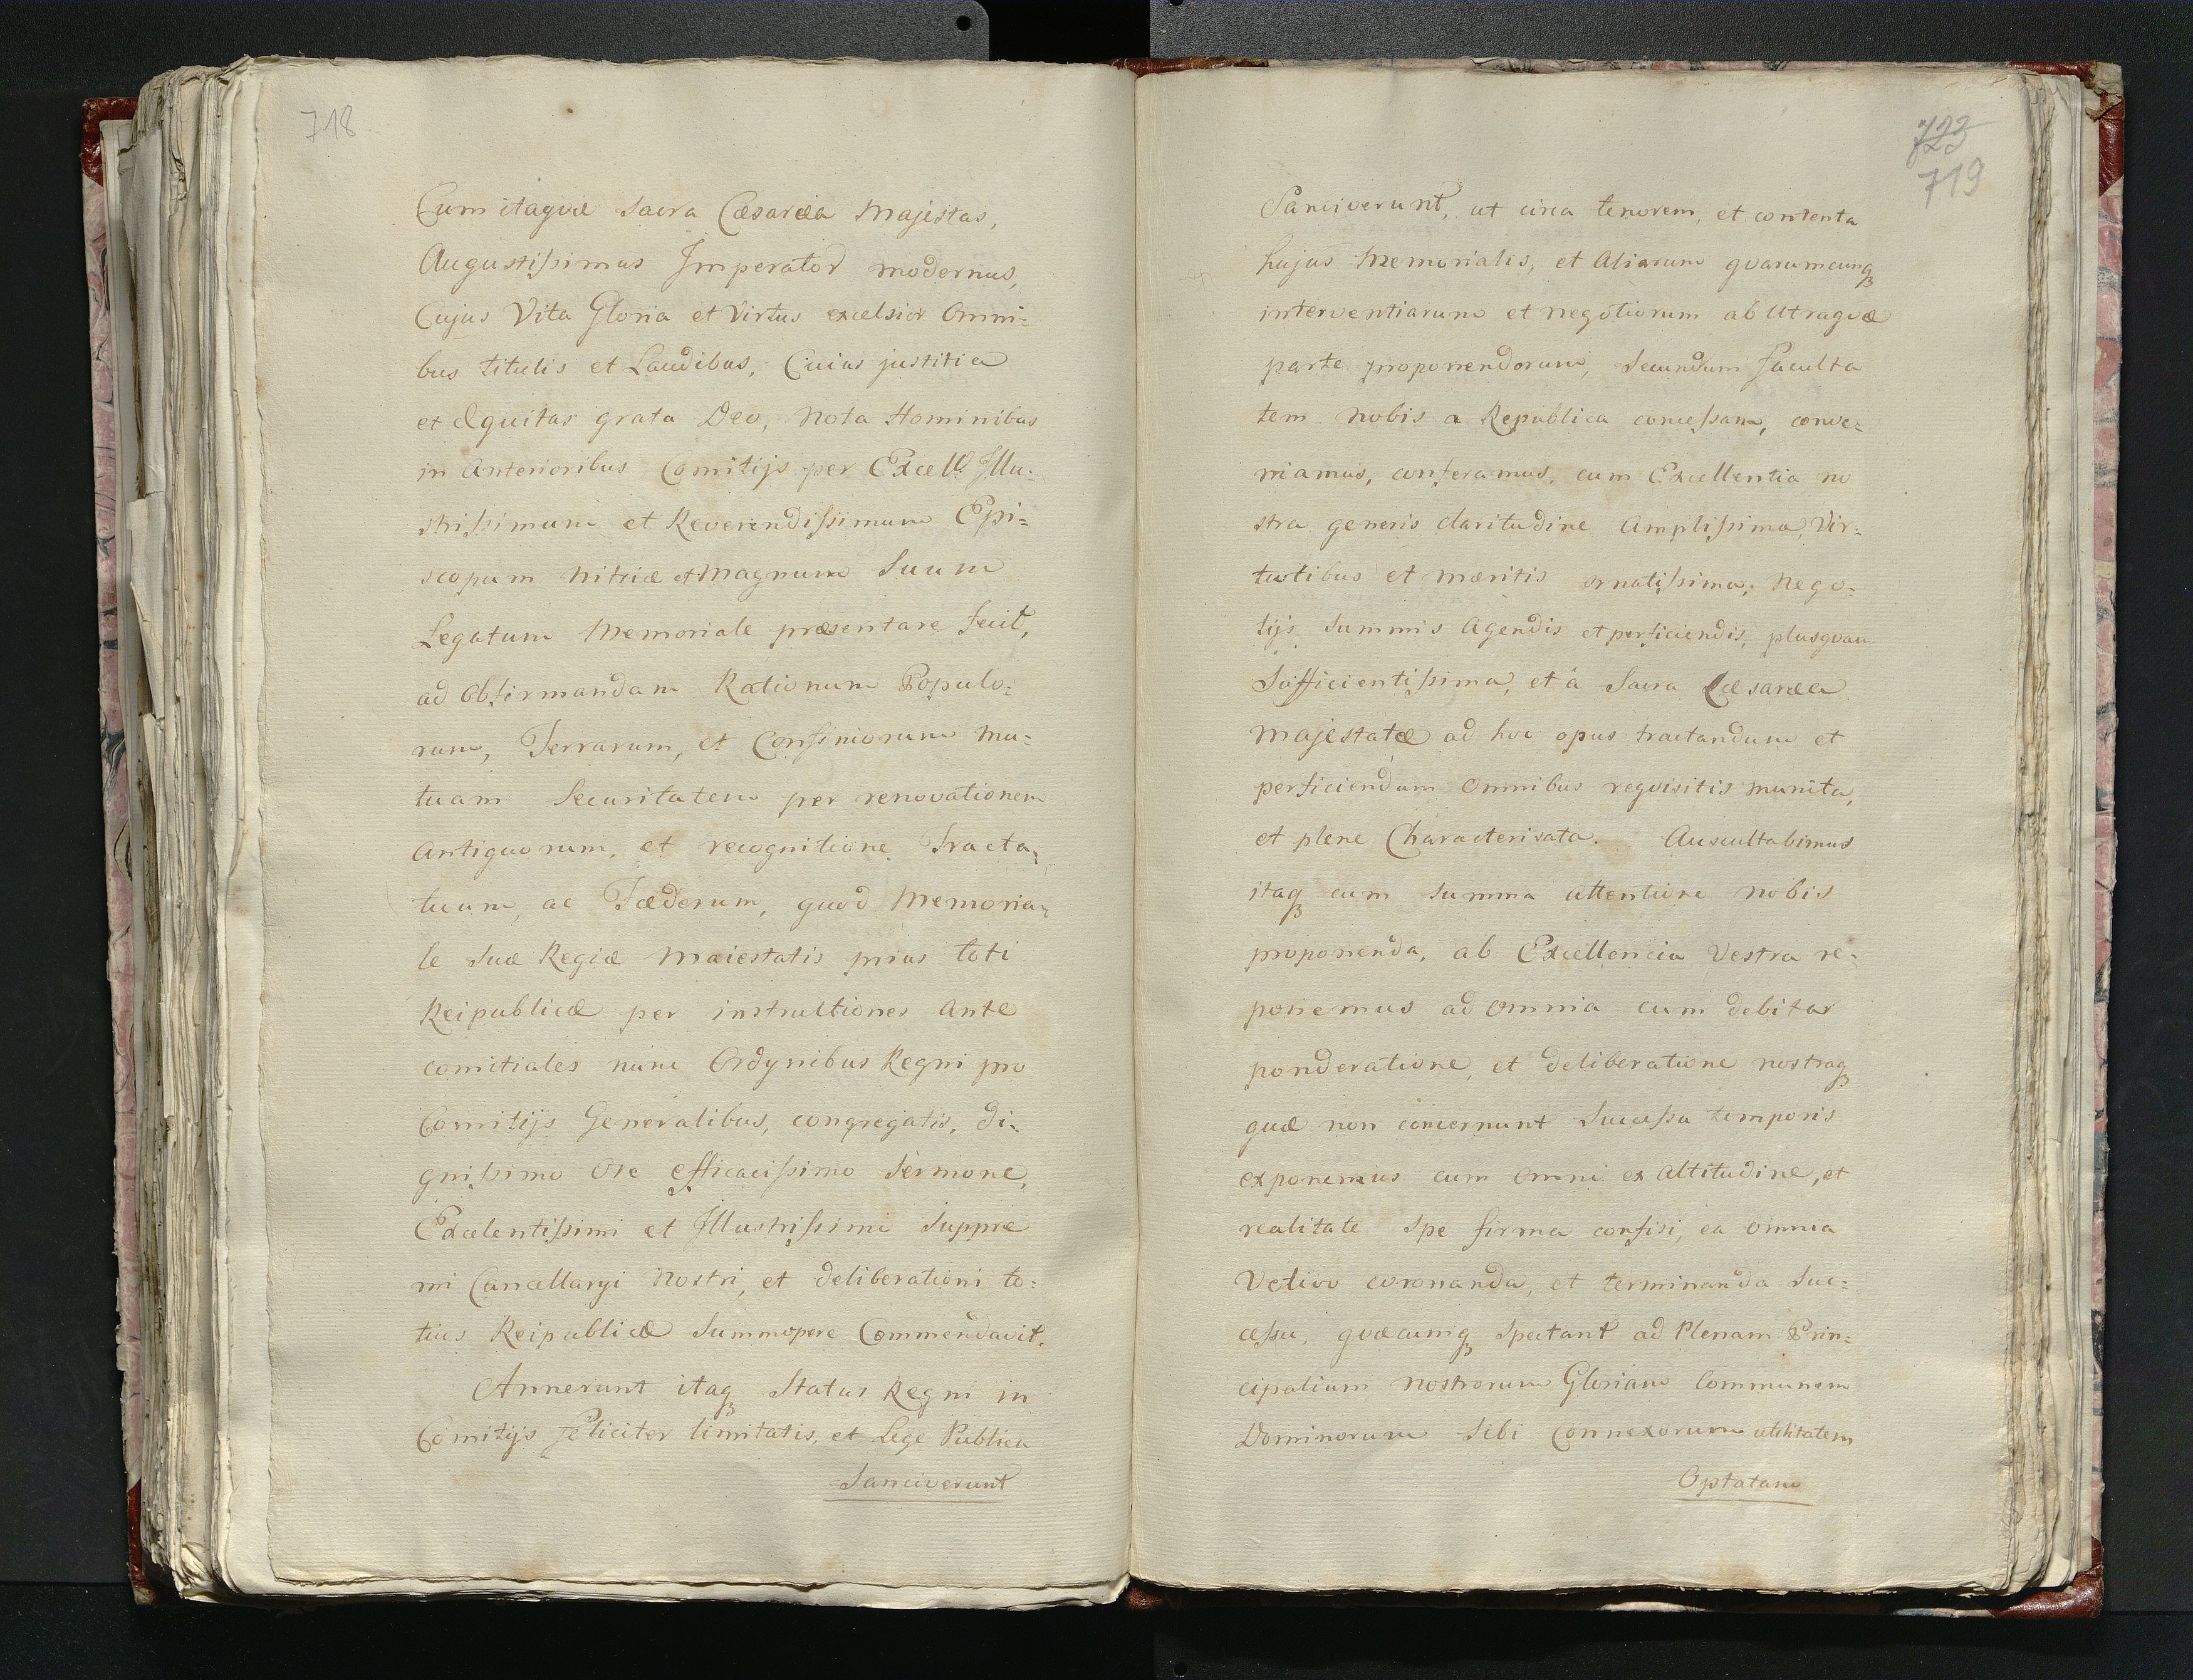 718
Cum itaqvæ Sacra Cæsaræa Majestas,
Augustissimus Imperator modernus,
Cujus Vita Gloria et Virtus excelsior Omni=
bus titulis et Laudibus, Cuius justitia
et Æquitas grata Deo, Nota Hominibus
in Anterioribus Comitijs per Excell. Illu=
strissimum et Reverendissimum Epi=
scopum Nitriæ et Magnum Suum
Legatum Memoriale præsentare fecit,
ad Obfirmandam Rationum Populo=
rum, Terrarum, et Confiniorum Mu=
tuam Securitatem per renovationem
Antiquorum, et recognitione Tracta=
tuum, ac Fæderum, quod Memoria=
le Suæ Regiæ Maiestatis prius toti
Reipublicæ per instructiones Ante
comitiales nunc Ordynibus Regni pro
Comitijs Generalibus, congregatis, di=
gnissimo Ore efficacissimo Sermone,
Excelentissimi et Illustrissimi Suppre
mi Cancellaryi Nostri, et deliberationi to=
tius Reipublicæ Summopere Commendavit.
Annerunt itaq₃ Status Regni in
Comitijs feliciter limitatis, et Lege Publica
Sanciverunt
723
719
Sanciverunt, ut circa tenorem, et contenta
hujus Memorialis, et Aliarum qvarumcunq₃
interventiarum et negotiorum ab Utraqvæ
parte proponendorum, Secundum Faculta
tem nobis a Republica concessam, conve=
niamus, conferamus, cum Excellentia no
stra generis claritudine Amplissima, Vir=
tutibus et mæritis ornatissima, Nego=
tijs Summis Agendis et perficiendis, plusqvam
Sufficientissima, et â Sacra Cæsaræa
Majestatæ ad hoc opus tractandum et
perficiendum Omnibus reqvisitis munita,
et plene Characterisata. Auscultabimus
itaq₃ cum Summa attentione nobis
proponenda, ab Excellencia Vestra re=
ponemus ad Omnia cum debitar
ponderatione, et deliberatione nostraq₃
quæ non concernunt Successu temporis
exponemus cum Omni ex Altitudine, et
realitate Spe firma confisi, ea Omnia
Votivo coronanda, et terminanda Suc=
cessu, qvæcumq₃ Spectant ad Plenam Prin=
cipalium Nostrorum Gloriam Communem
Dominorum Sibi Connexorum utilitatem
Optatam